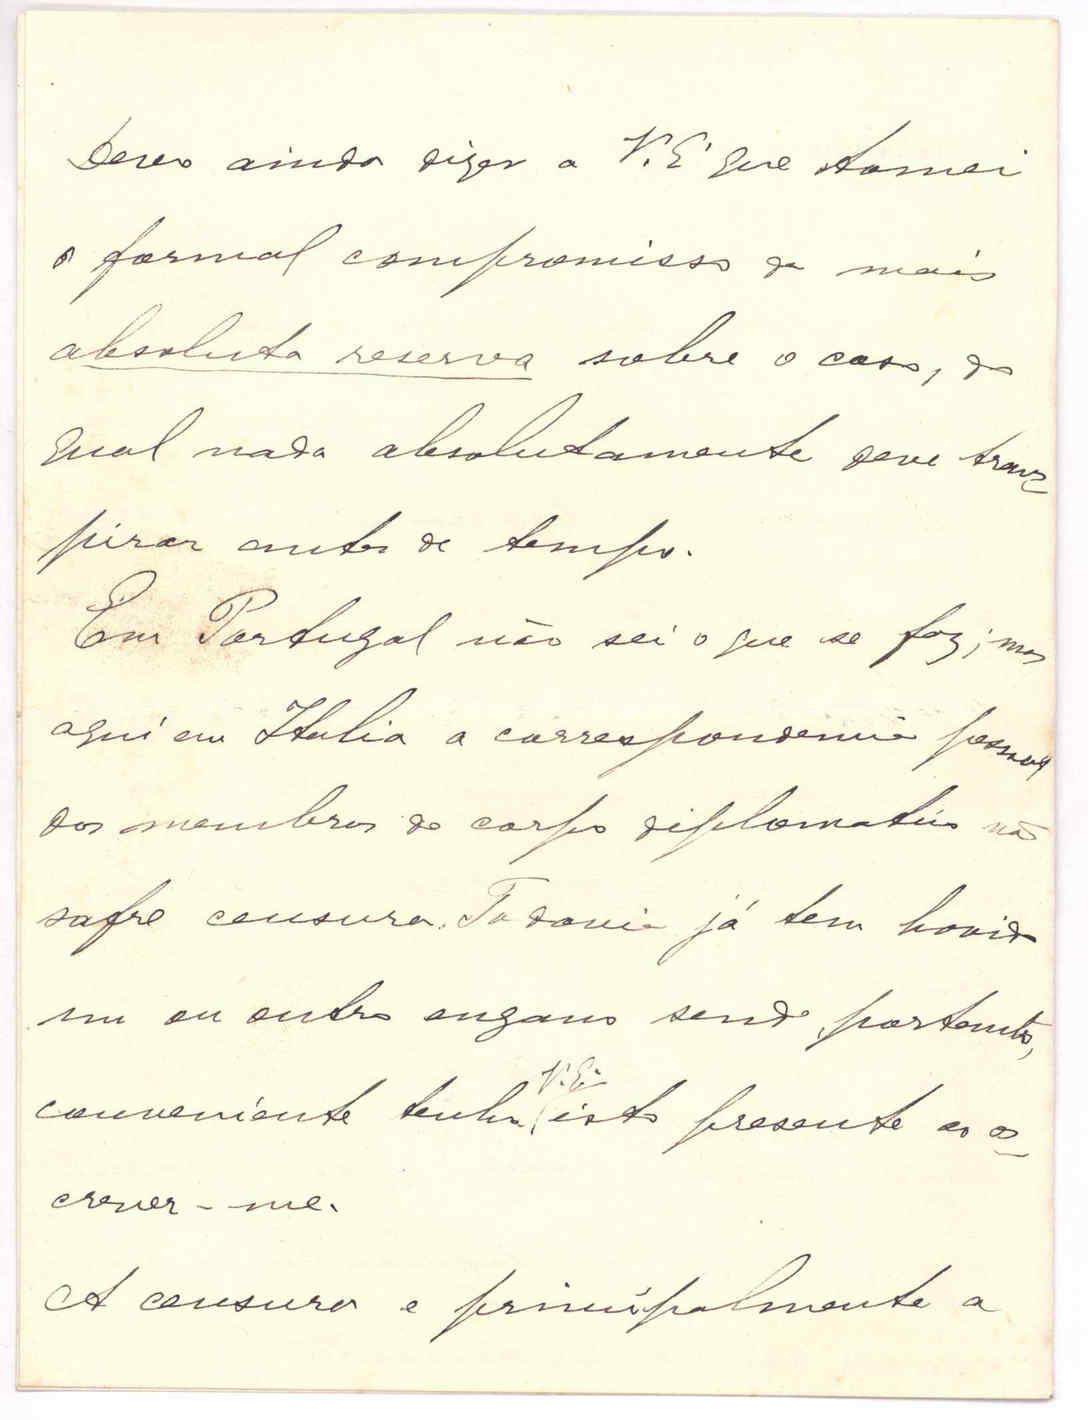 Devo ainda dizer a V. Ex.ª que tomei
o formal compromisso da mais
absoluta reserva sobre o caso, do
qual nada absolutamente deve trans-
pirar antes de tempo.
Em Portugal não sei o que se faz; mas
aqui em Italia a correspondencia pessoal
dos membros do corpo diplomatico não
sofre censura. Todavia já tem havido
um ou outro engano sendo, portanto,
conveniente tenha V. Ex.ª isto presente ao es-
crever-me.
A censura e principalmente a